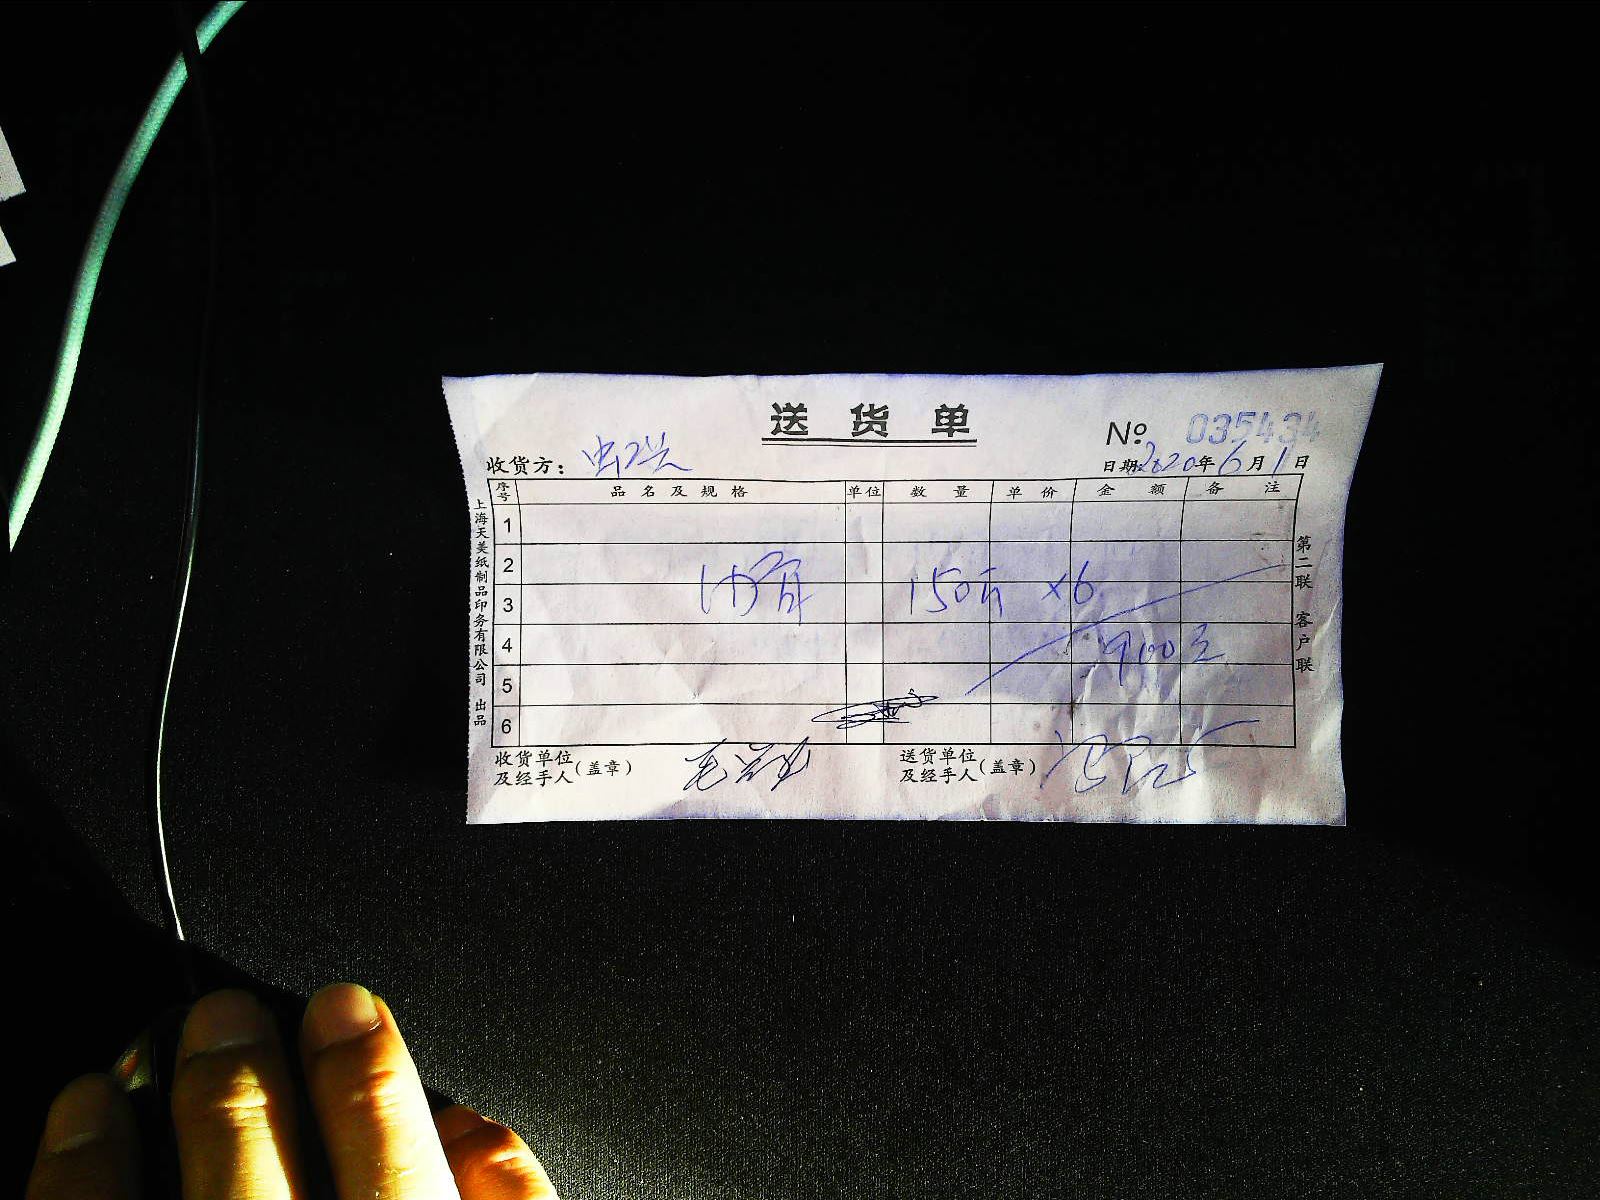 送货单
№ 035434
收货方:
日期:2020年6月1日
序号 品名及规格 单位 数量 单价 金额 备注
1
2
3
150元 ×6
4
900元
5
6
收货单位及经手人(盖章)
送货单位及经手人(盖章)
上海天美纸制品印务有限公司 出品
第二联 客户联